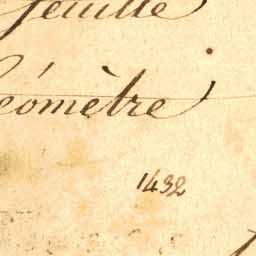 feuille
éomètre
1432